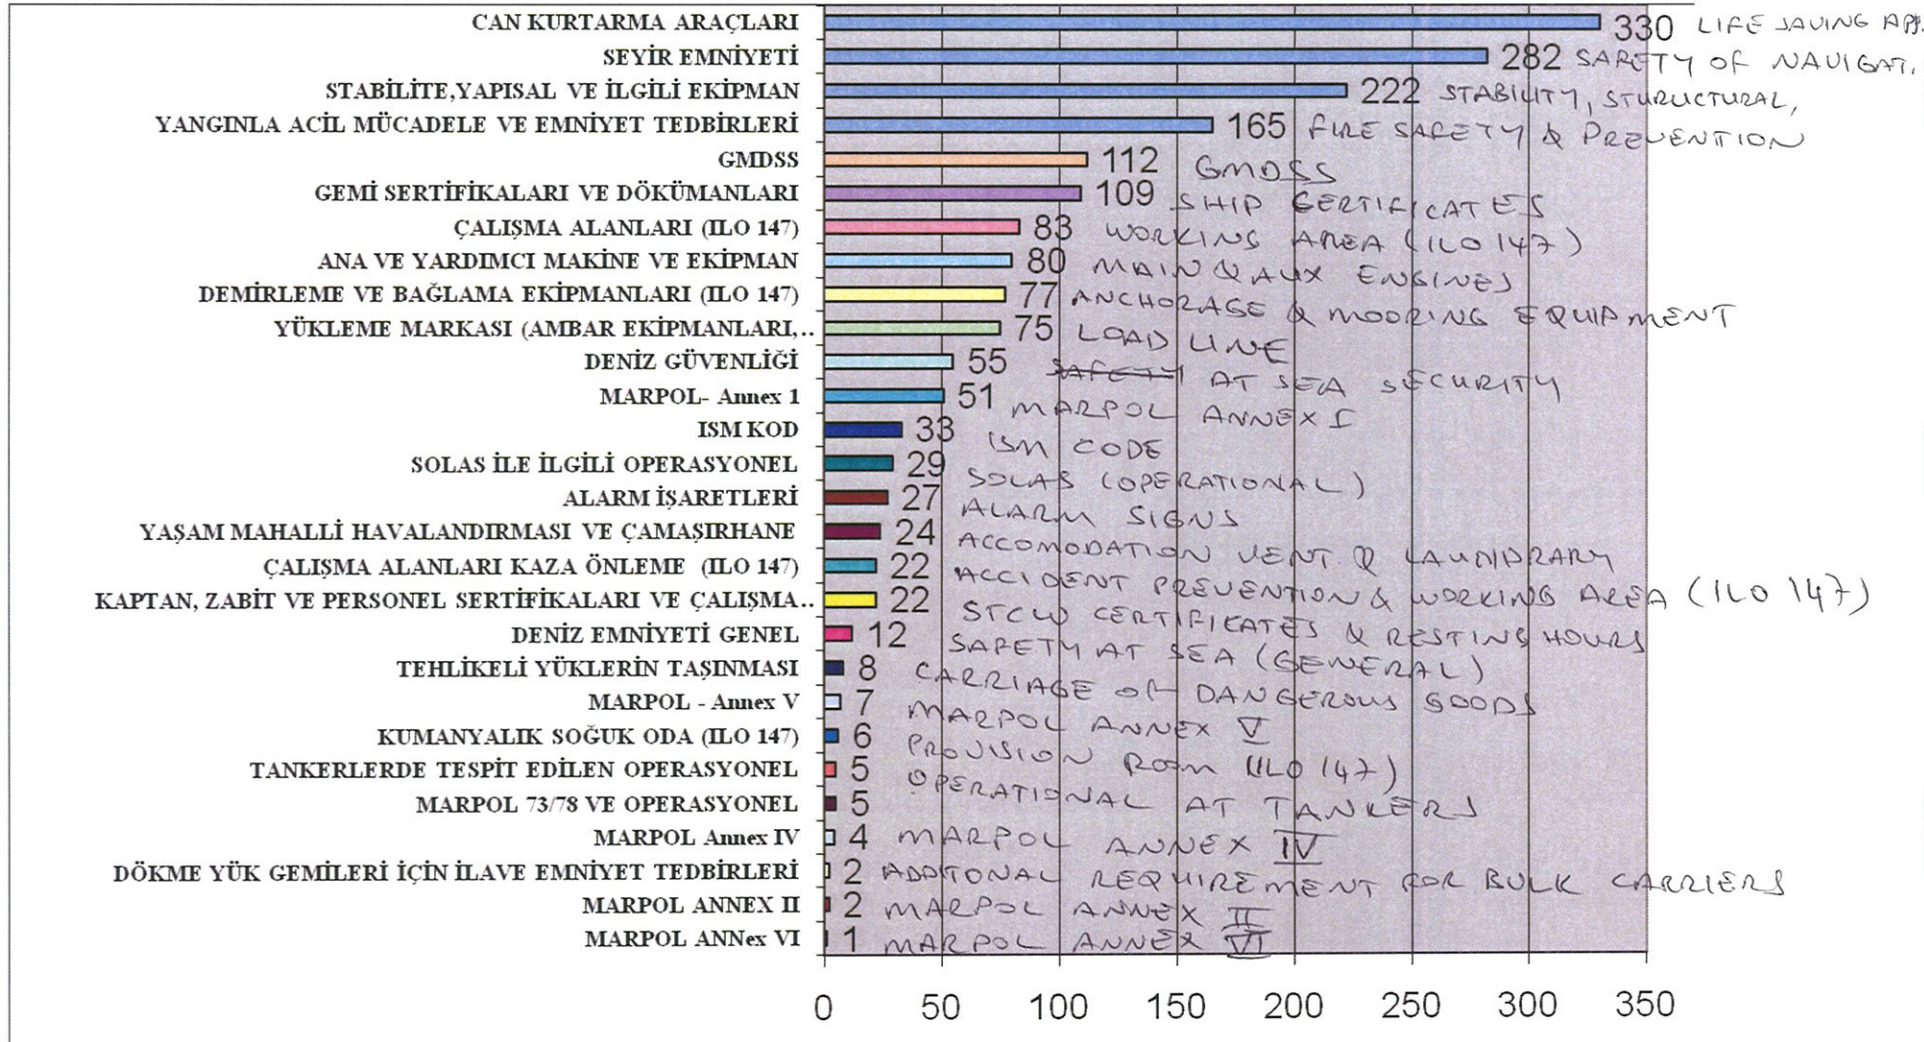 CAN KURTARMA ARAÇLARI 330 LIFE SAVING APP.
SEYİR EMNİYETİ 282 SAFETY OF NAVIGAT.
STABİLİTE,YAPISAL VE İLGİLİ EKİPMAN 222 STABILITY, STURUCTURAL,
YANGINLA ACİL MÜCADELE VE EMNİYET TEDBİRLERİ 165 FIRE SAFETY & PREVENTION
GMDSS 112 GMDSS
GEMİ SERTİFİKALARI VE DÖKÜMANLARI 109 SHIP CERTIFICATES
ÇALIŞMA ALANLARI (ILO 147) 83 WORKING AREA (ILO 147)
ANA VE YARDIMCI MAKİNE VE EKİPMAN 80 MAIN & AUX ENGINES
DEMİRLEME VE BAĞLAMA EKİPMANLARI (ILO 147) 77 ANCHORAGE & MOORING EQUIPMENT
YÜKLEME MARKASI (AMBAR EKİPMANLARI,.. 75 LOAD LINE
DENİZ GÜVENLİĞİ 55 SAFETY AT SEA SECURITY
MARPOL- Annex 1 51 MARPOL ANNEX I
ISM KOD 33 ISM CODE
SOLAS İLE İLGİLİ OPERASYONEL 29 SOLAS (OPERATIONAL)
ALARM İŞARETLERİ 27 ALARM SIGNS
YAŞAM MAHALLİ HAVALANDIRMASI VE ÇAMAŞIRHANE 24 ACCOMODATION VENT & LAUNDRARY
ÇALIŞMA ALANLARI KAZA ÖNLEME (ILO 147) 22 ACCIDENT PREVENTION & WORKING AREA (ILO 147)
KAPTAN, ZABİT VE PERSONEL SERTİFİKALARI VE ÇALIŞMA.. 22 STCW CERTIFICATES & RESTING HOURS
DENİZ EMNİYETİ GENEL 12 SAFETY AT SEA (GENERAL)
TEHLİKELİ YÜKLERİN TAŞINMASI 8 CARRIAGE OF DANGEROUS GOODS
MARPOL - Annex V 7 MARPOL ANNEX V
KUMANYALIK SOĞUK ODA (ILO 147) 6 PROVISION ROOM (ILO 147)
TANKERLERDE TESPİT EDİLEN OPERASYONEL 5 OPERATIONAL AT TANKERS
MARPOL 73/78 VE OPERASYONEL 5
MARPOL Annex IV 4 MARPOL ANNEX IV
DÖKME YÜK GEMİLERİ İÇİN İLAVE EMNİYET TEDBİRLERİ 2 ADDITONAL REQUIREMENT FOR BULK CARRIERS
MARPOL ANNEX II 2 MARPOL ANNEX II
MARPOL ANNex VI 1 MARPOL ANNEX VI
0 50 100 150 200 250 300 350